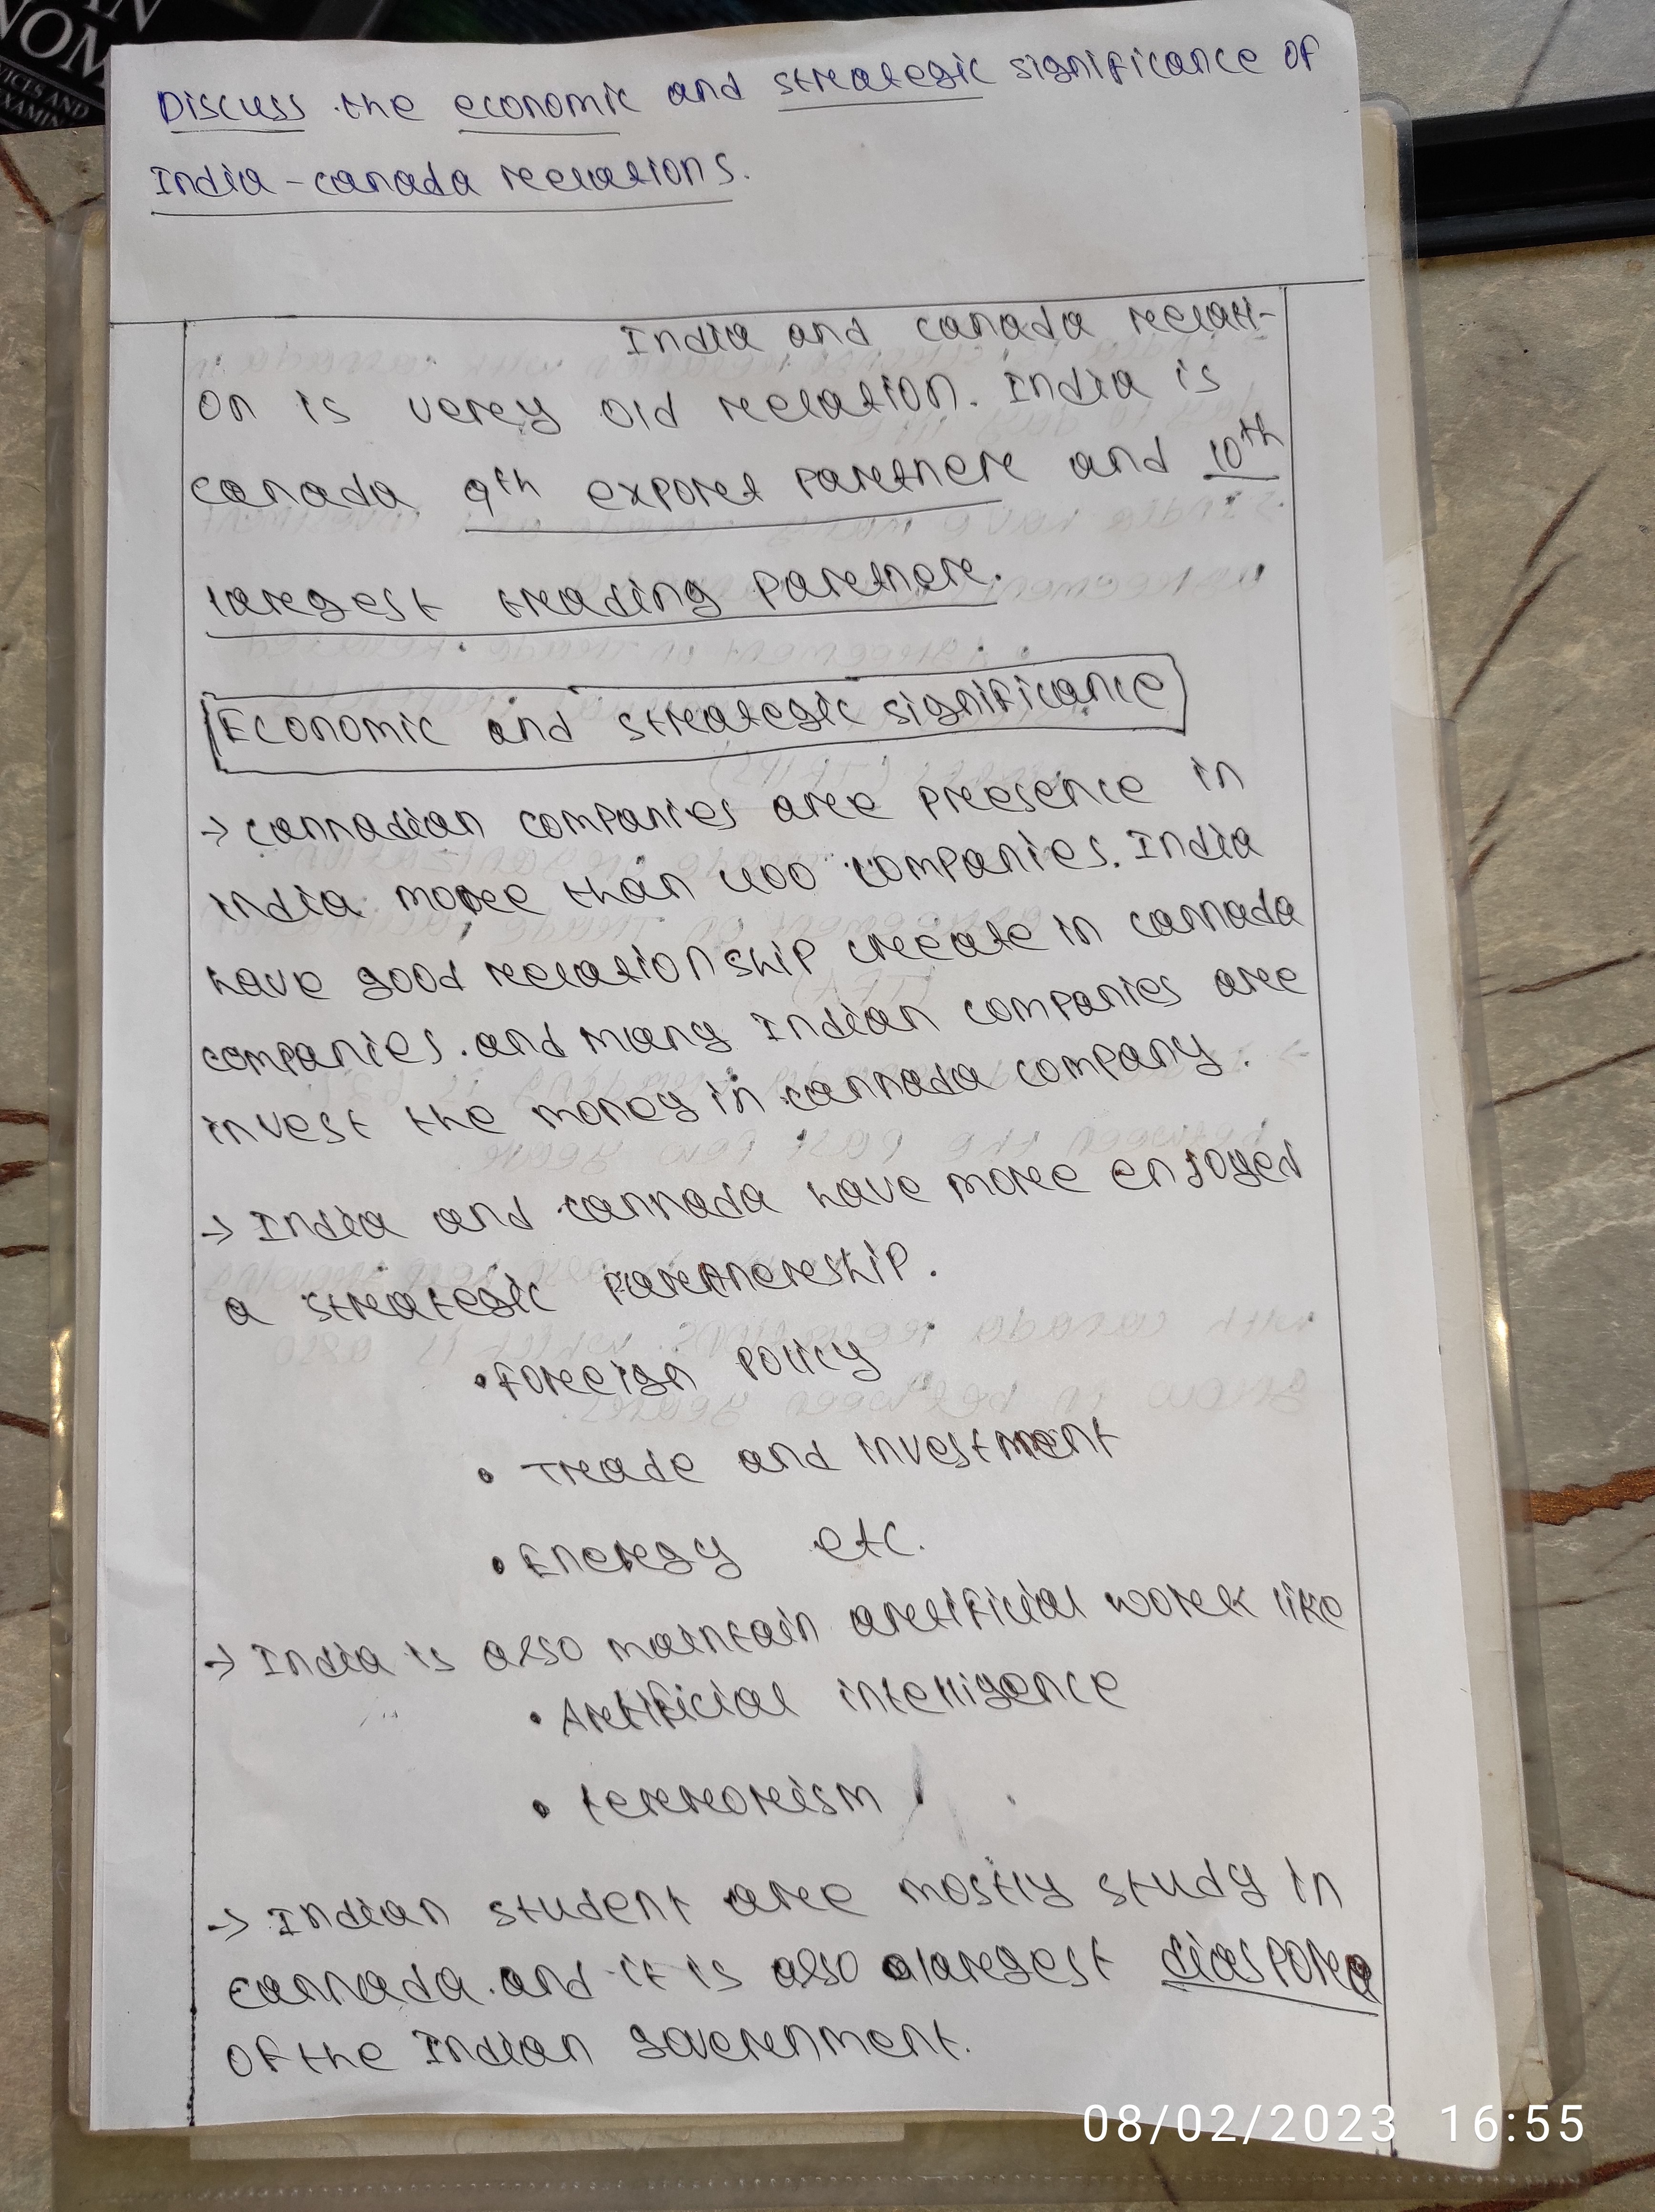 Discuss the economic and strategic significance of
India-canada relations.
India and canada relati-
on is very old relation. India is
canada 9th export partner and 10th
largest trading partner.
Economic and strategic significance
→ cannadian companies are presence in
india more than 400 companies. India
have good relationship create in cannada
companies. and many Indian companies are
invest the money in cannada company.
→ India and cannada have more enjoyed
a strategic partnership.
• Foreign policy
• Trade and investment
• Energy etc.
→ India is also maintain artificial work like
• Artificial intelligence
• terrorism
→ Indian student are mostly study in
cannada. and it is also a largest diaspora
of the Indian government.
08/02/2023 16:55